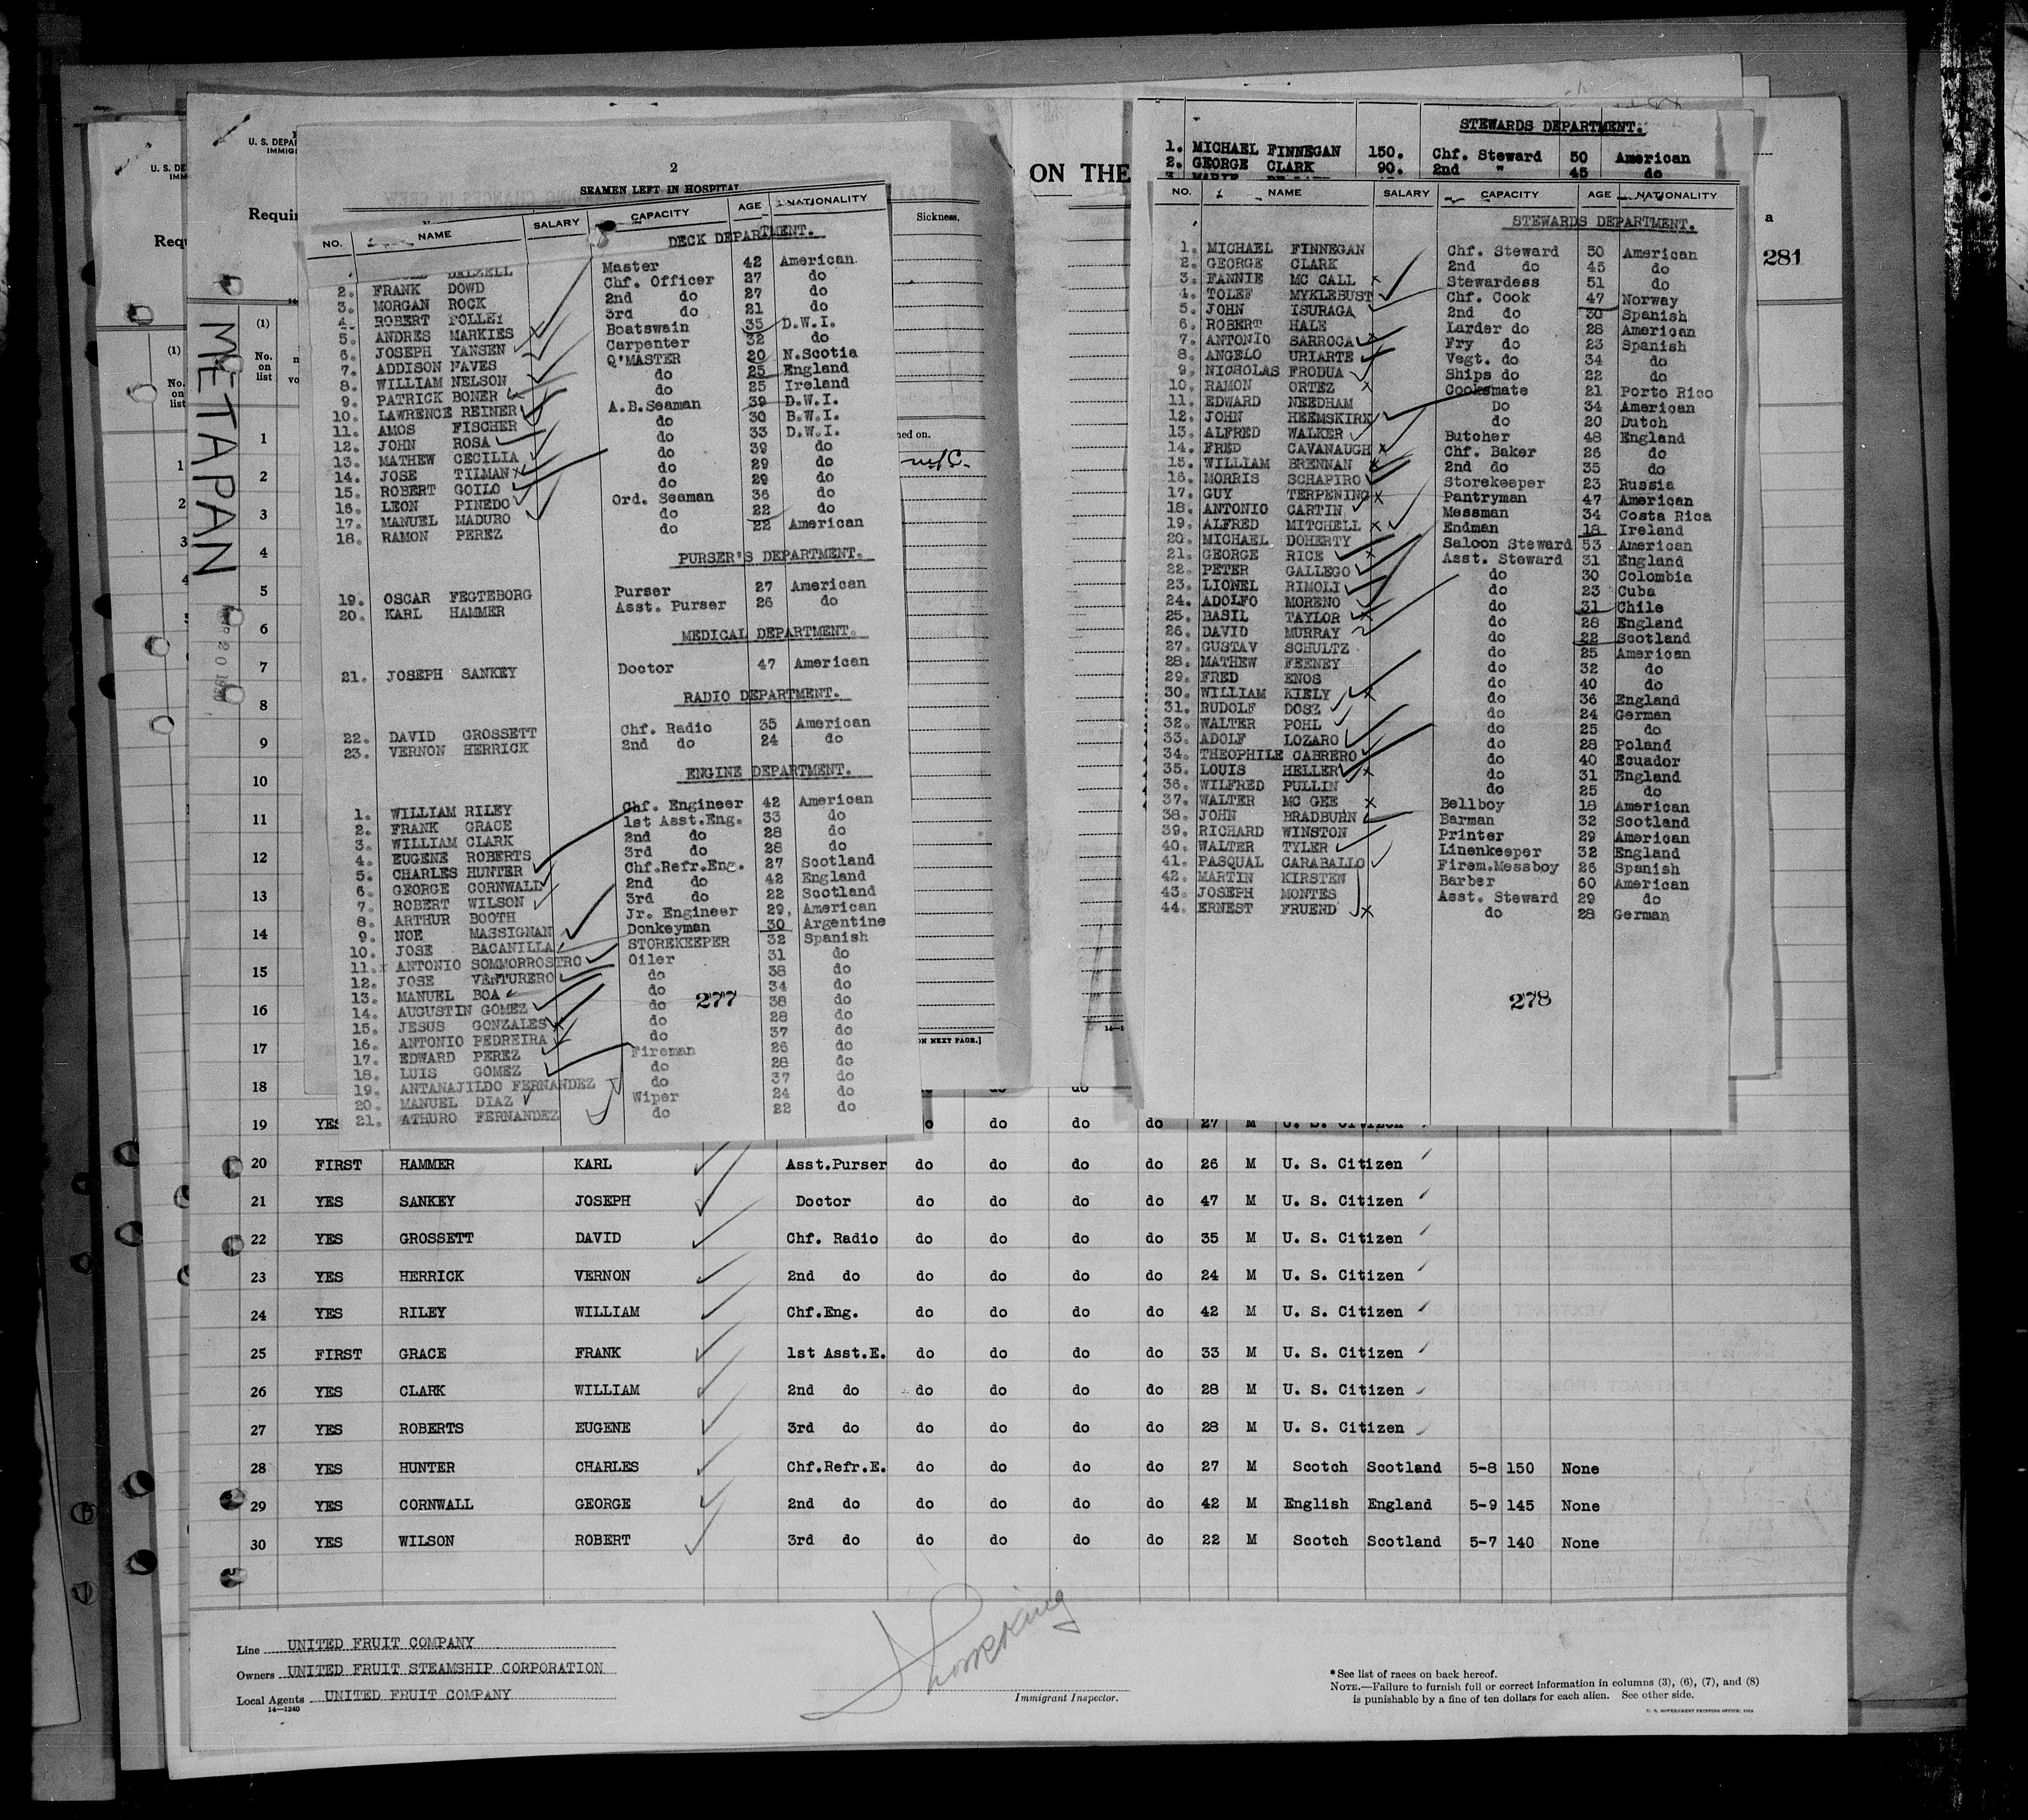 U. S. DEPAR
IMMIG
U. S. DE
IMM
Requir
Requ
METAPAN
2
SEAMEN LEFT IN HOSPITAL
Sickness.
NO. NAME SALARY CAPACITY AGE NATIONALITY
DECK DEPARTMENT.
DALZELL Master 42 American
2. FRANK DOWD Chf. Officer 27 do
3. MORGAN ROCK 2nd do 27 do
4. ROBERT POLLEY 3rd do 21 do
5. ANDRES MARKIES Boatswain 35 D.W.I.
6. JOSEPH YANSEN Carpenter 32 do
7. ADDISON NAVES Q'MASTER 20 N.Scotia
8. WILLIAM NELSON do 25 England
9. PATRICK BONER do 25 Ireland
10. LAWRENCE REINER A.B.Seaman 39 D.W.I.
11. AMOS FISCHER do 30 B.W.I.
12. JOHN ROSA do 33 D.W.I.
13. MATHEW CECILIA do 39 do
14. JOSE TILMAN do 29 do
15. ROBERT GOILO do 29 do
16. LEON PINEDO Ord. Seaman 36 do
17. MANUEL MADURO do 22 do
18. RAMON PEREZ do 22 American
PURSER'S DEPARTMENT.
19. OSCAR FEGTEBORG Purser 27 American
20. KARL HAMMER Asst. Purser 26 do
MEDICAL DEPARTMENT.
21. JOSEPH SANKEY Doctor 47 American
RADIO DEPARTMENT.
22. DAVID GROSSETT Chf. Radio 35 American
23. VERNON HERRICK 2nd do 24 do
ENGINE DEPARTMENT.
1. WILLIAM RILEY Chf. Engineer 42 American
2. FRANK GRACE 1st Asst.Eng. 33 do
3. WILLIAM CLARK 2nd do 28 do
4. EUGENE ROBERTS 3rd do 28 do
5. CHARLES HUNTER Chf.Refr.Eng. 27 Scotland
6. GEORGE CORNWALL 2nd do 42 England
7. ROBERT WILSON 3rd do 22 Scotland
8. ARTHUR BOOTH Jr. Engineer 29, American
9. NOE MASSIGNAN Donkeyman 30 Argentine
10. JOSE BACANILLA STOREKEEPER 32 Spanish
11. ANTONIO SOMMORROSTRO Oiler 31 do
12. JOSE VENTURERO do 38 do
13. MANUEL BOA do 34 do
14. AUGUSTIN GOMEZ do 38 do
15. JESUS GONZALES do 28 do
16. ANTONIO PEDREIRA do 37 do
17. EDWARD PEREZ Fireman 26 do
18. LUIS GOMEZ do 28 do
19. ANTANAJILDO FERNANDEZ do 37 do
20. MANUEL DIAZ Wiper 24 do
21. ATHURO FERNANDEZ do 22 do
277
ON THE
STEWARDS DEPARTMENT.
1. MICHAEL FINNEGAN 150. Chf. Steward 50 American
2. GEORGE CLARK 90. 2nd " 45 do
NO. NAME SALARY CAPACITY AGE NATIONALITY
STEWARDS DEPARTMENT.
1. MICHAEL FINNEGAN Chf. Steward 50 American
2. GEORGE CLARK 2nd do 45 do
3. FANNIE MC CALL Stewardess 51 do
4. TOLEF MYKLEBUST Chf. Cook 47 Norway
5. JOHN ISURAGA 2nd do 30 Spanish
6. ROBERT HALE Larder do 28 American
7. ANTONIO SARROCA Fry do 23 Spanish
8. ANGELO URIARTE Vegt. do 34 do
9. NICHOLAS FRODUA Ships do 22 do
10. RAMON ORTEZ Cooksmate 21 Porto Rico
11. EDWARD NEEDHAM Do 34 American
12. JOHN HEEMSKIRK do 20 Dutch
13. ALFRED WALKER Butcher 48 England
14. FRED CAVANAUGH Chf. Baker 26 do
15. WILLIAM BRENNAN 2nd do 35 do
16. MORRIS SCHAPIRO Storekeeper 23 Russia
17. GUY TERPENING Pantryman 47 American
18. ANTONIO CARTIN Messman 34 Costa Rica
19. ALFRED MITCHELL Endman 18 Ireland
20. MICHAEL DOHERTY Saloon Steward 53 American
21. GEORGE RICE Asst. Steward 31 England
22. PETER GALLEGO do 30 Colombia
23. LIONEL RIMOLI do 23 Cuba
24. ADOLFO MORENO do 31 Chile
25. BASIL TAYLOR do 28 England
26. DAVID MURRAY do 22 Scotland
27. GUSTAV SCHULTZ do 25 American
28. MATHEW FEENEY do 32 do
29. FRED ENOS do 40 do
30. WILLIAM KIELY do 36 England
31. RUDOLF DOSZ do 24 German
32. WALTER POHL do 25 do
33. ADOLF LOZARO do 28 Poland
34. THEOPHILE CABRERO do 40 Ecuador
35. LOUIS HELLER do 31 England
36. WILFRED PULLIN do 25 do
37. WALTER MC GEE Bellboy 18 American
38. JOHN BRADBURN Barman 32 Scotland
39. RICHARD WINSTON Printer 29 American
40. WALTER TYLER Linenkeeper 32 England
41. PASQUAL CARABALLO Firem.Messboy 26 Spanish
42. MARTIN KIRSTEN Barber 60 American
43. JOSEPH MONTES Asst. Steward 29 do
44. ERNEST FRUEND do 28 German
278
a
281
(1)
No. on list
1
2
3
4
5
6
7
8
9
10
11
12
13
14
15
16
17
18
ON NEXT PAGE.]
19 YES do do do 27 M U. S. Citizen
20 FIRST HAMMER KARL Asst.Purser do do do do 26 M U. S. Citizen
21 YES SANKEY JOSEPH Doctor do do do do 47 M U. S. Citizen
22 YES GROSSETT DAVID Chf. Radio do do do do 35 M U. S. Citizen
23 YES HERRICK VERNON 2nd do do do do do 24 M U. S. Citizen
24 YES RILEY WILLIAM Chf.Eng. do do do do 42 M U. S. Citizen
25 FIRST GRACE FRANK 1st Asst.E. do do do do 33 M U. S. Citizen
26 YES CLARK WILLIAM 2nd do do do do do 28 M U. S. Citizen
27 YES ROBERTS EUGENE 3rd do do do do do 28 M U. S. Citizen
28 YES HUNTER CHARLES Chf.Refr.E. do do do do 27 M Scotch Scotland 5-8 150 None
29 YES CORNWALL GEORGE 2nd do do do do do 42 M English England 5-9 145 None
30 YES WILSON ROBERT 3rd do do do do do 22 M Scotch Scotland 5-7 140 None
Line UNITED FRUIT COMPANY
Owners UNITED FRUIT STEAMSHIP CORPORATION
Local Agents UNITED FRUIT COMPANY
14—1240
Immigrant Inspector.
* See list of races on back hereof.
NOTE.—Failure to furnish full or correct information in columns (3), (6), (7), and (8)
is punishable by a fine of ten dollars for each alien. See other side.